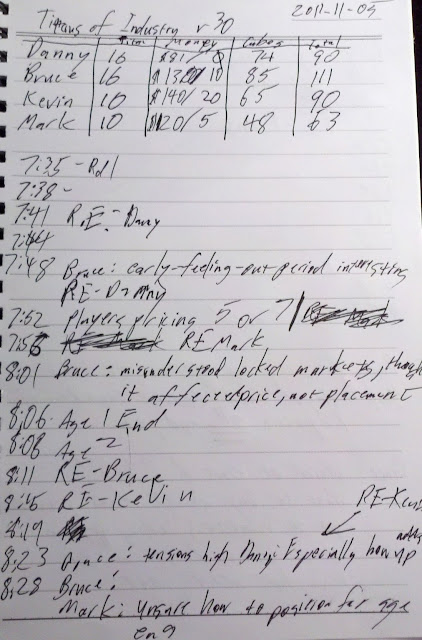 Titans of Industry v 30
2011-11-05
Titan Money Cubes Total
Danny 16 $81/0 74 90
Bruce 16 $130/10 85 111
Kevin 10 $140/20 65 90
Mark 10 $120/5 48 63
7:35 - Roll
7:38 -
7:41 RE - Danny
7:44
7:48 Bruce: early-feeling-out period interesting
RE - Danny
7:52 Players pricing 5 or 7
7:56 RE Mark
8:01 Bruce: misunderstood locked markets, thought
it affected price, not placement
8:06 Age 1 End
8:08 Age 2
8:11 RE - Bruce
8:15 RE - Kevin
8:19
RE - Kevin
8:23 Bruce: tensions high Danny: Especially how up
8:28 Bruce:
Mark: Unsure how to position for age
end